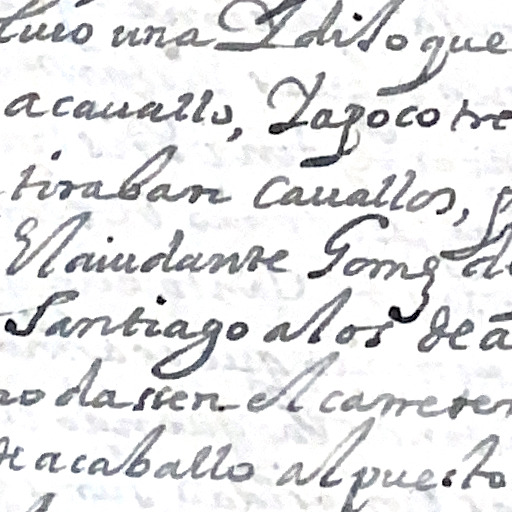 una Y dito que
a cauallo, Yapoco tre
tiraban cauallos,
El aiudante Gomez de
Santiago a los de a
no dasien el carreren
a caballo al puesto